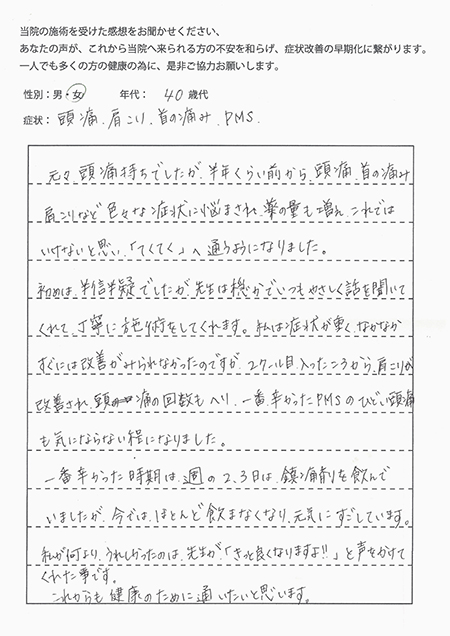 当院の施術を受けた感想をお聞かせください、
あなたの声が、これから当院へ来られる方の不安を和らげ、症状改善の早期化に繋がります。
一人でも多くの方の健康の為に、是非ご協力お願いします。
性別：男・女　年代：40歳代
症状：頭痛．肩こり．首の痛み．PMS．
元々頭痛持ちでしたが、半年くらい前から、頭痛、首の痛み
肩こりなど色々な症状に悩まされ、薬の量も増え、これでは
いけないと思い、「てくてく」へ通うようになりました。
初めは、半信半疑でしたが、先生は穏かでいつもやさしく話を聞いて
くれて、丁寧に施術をしてくれます。私は症状が重く、なかなか
すぐには改善がみられなかったのですが、2クール目入ったころから、肩こりが
改善され、頭痛の回数もへり、一番辛かったPMSのひどい頭痛
も気にならない程になりました。
一番辛かった時期は、週の2、3日は、鎮痛剤を飲んで
いましたが、今では、ほとんど飲まなくなり、元気にすごしています。
私が何より、うれしかったのは、先生が、「きっと良くなりますよ!!」と声をかけて
くれた事です。
これからも健康のために通いたいと思います。